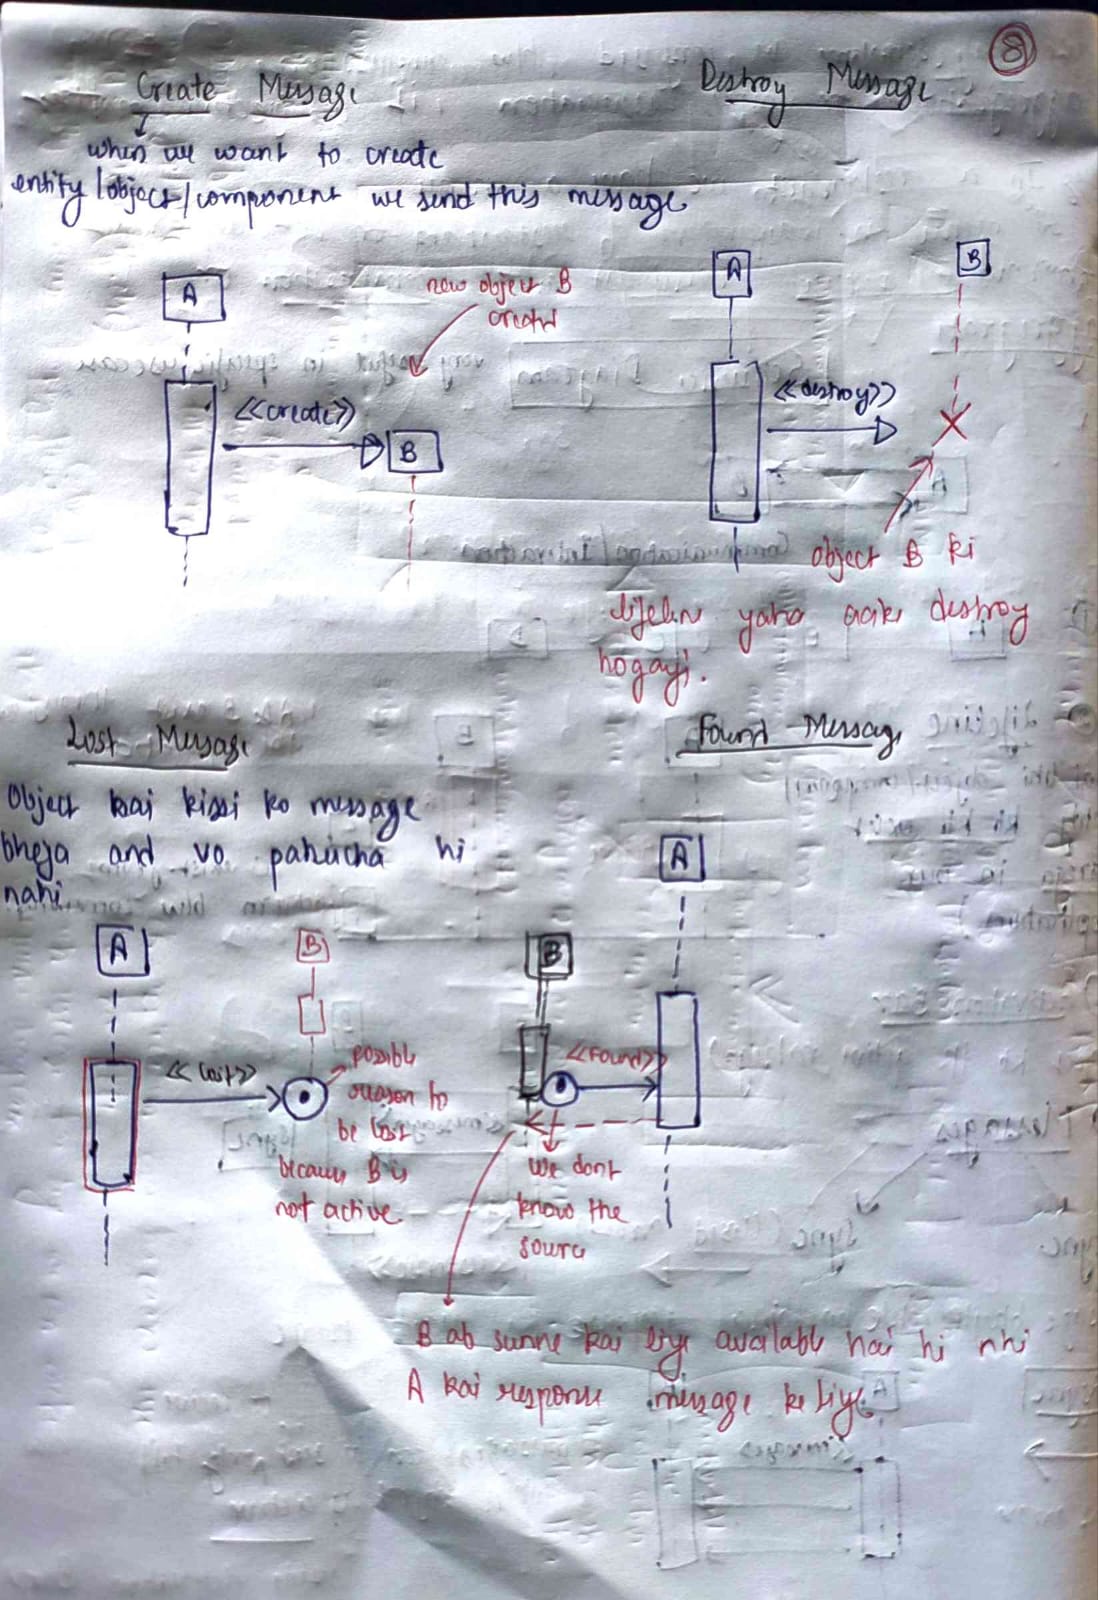 8
Create Message
when we want to create
entity/object/component we send this message.
A
new object B
created
<<create>>
B
Destroy Message
A
B
<<destroy>>
object B ki
lifeline yaha aake destroy
hogayi.
Lost Message
Object kai kissi ko message
bheja and vo pahucha hi
nahi
A
B
<<lost>>
possible
reason to
be lost
because B is
not active.
Found Message
A
B
<<Found>>
We dont
know the
source
B ab sunne kai liye available hai hi nhi
A kai response message ke liye